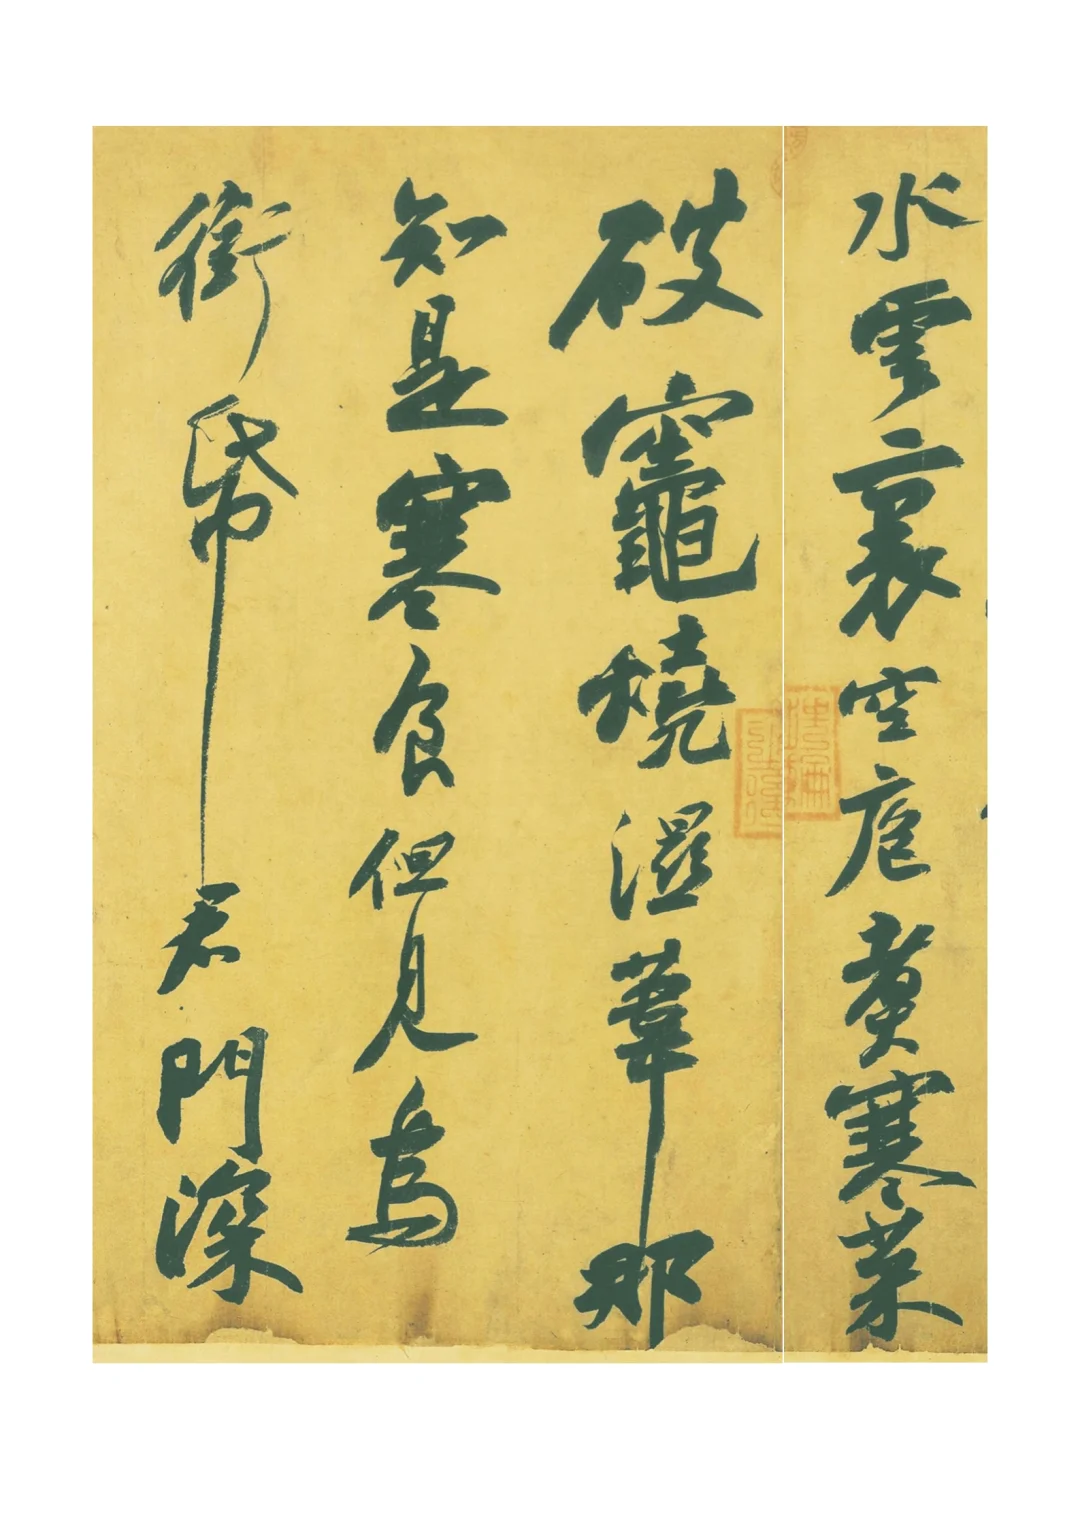 水雲裏空庖煮寒菜
破竈燒濕葦那
知是寒食但見烏
銜帋君門深